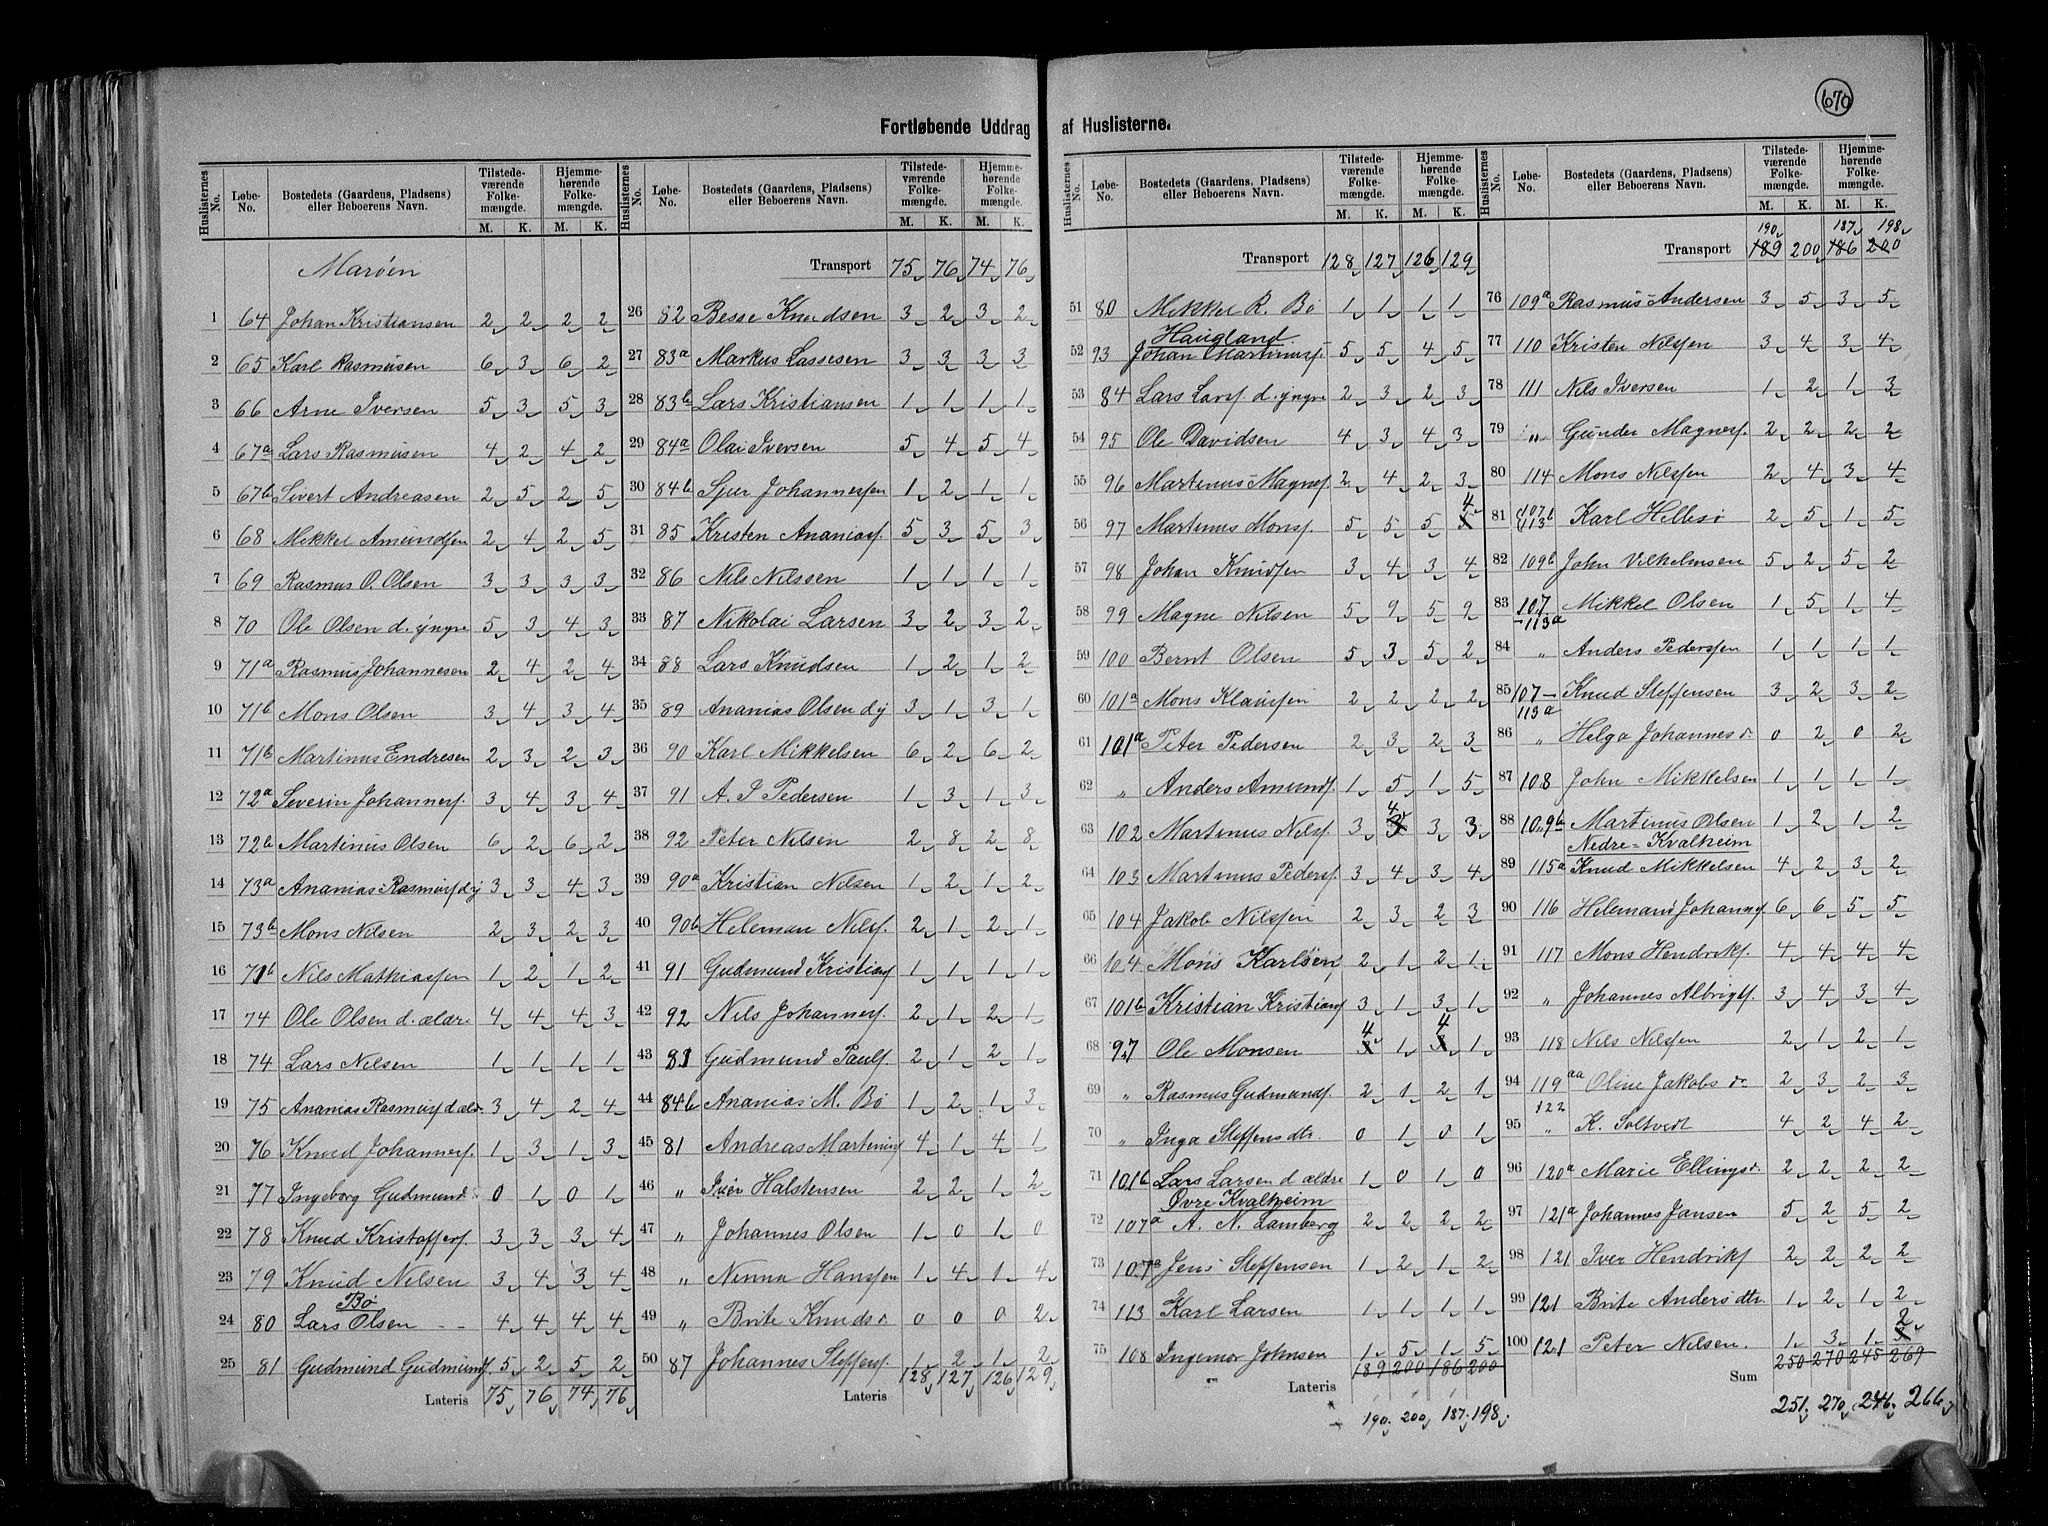 670
Fortløbende Uddrag af Huslisterne.
Huslisternes No. Løbe-No. Bostedets (Gaardens, Pladsens) eller Beboerens Navn. Tilstedeværende Folkemængde. M. K. Hjemmehørende Folkemængde. M. K.
Marøen
1 64 Johan Kristiansen 2 2 2 2
2 65 Karl Rasmusen 6 3 6 2
3 66 Arne Iversen 5 3 5 3
4 67a Lars Rasmusen 4 2 4 2
5 67b Sivert Andreasen 2 5 2 5
6 68 Mikkel Amundsen 2 4 2 5
7 69 Rasmus O. Olsen 3 3 3 3
8 70 Ole Olsen d. yngre 5 3 4 3
9 71a Rasmus Johannesen 2 4 2 4
10 71b Mons Olsen 3 4 3 4
11 71b Martinus Endresen 2 3 2 3
12 72a Severin Johannesf. 3 4 3 4
13 72b Martinus Olsen 6 2 6 2
14 73a Ananias Rasmusf d y 3 3 4 3
15 73b Mons Nilsen 2 3 2 3
16 71b Nils Mathiassen 1 2 1 2
17 74 Ole Olsen d. ældr. 4 4 4 3
18 74 Lars Nilsen 1 1 1 1
19 75 Ananias Rasmusf d. æld. 3 4 2 4
20 76 Knud Johannesf. 1 3 1 3
21 77 Ingeborg Gudmund 0 1 0 1
22 78 Knud Kristoffersf. 3 3 3 4
23 79 Knud Nilsen 3 4 3 4
Bø
24 80 Lars Olsen - - 4 4 4 4
25 81 Gudmund Gudmunds. 5 2 5 2
Lateris 75 76 74 76
Huslisternes No. Løbe-No. Bostedets (Gaardens, Pladsens) eller Beboerens Navn. Tilstedeværende Folkemængde. M. K. Hjemmehørende Folkemængde. M. K.
Transport 75 76 74 76
26 82 Besse Knudsen 3 2 3 2
27 83a Markus Lassesen 3 3 3 3
28 83b Lars Kristiansen 1 1 1 1
29 84a Olai Iversen 5 4 5 4
30 84b Sjur Johannessen 1 2 1 1
31 85 Kristen Ananiasf. 5 3 5 3
32 86 Nils Nilssen 1 1 1 1
33 87 Nikolai Larsen 3 2 3 2
34 88 Lars Knudsen 1 2 1 2
35 89 Ananias Olsen d y 3 1 3 1
36 90 Karl Mikkelsen 6 2 6 2
37 91 A. P Pedersen 1 3 1 3
38 92 Peter Nilsen 2 8 2 8
39 90a Kristian Nilsen 1 2 1 2
40 90b Heleman Nilsf. 2 1 2 1
41 91 Gudmund Kristiansf 1 1 1 1
42 92 Nils Johannesf. 2 1 2 1
43 81 Gudmund Paulsf. 2 1 2 1
44 84b Ananias M. Bø 1 2 1 3
45 81 Andreas Martinusf 4 1 4 1
46 " Iver Halstensen 2 2 1 2
47 " Johannes Olsen 1 0 1 0
48 " Ninna Hanssen 1 4 1 4
49 " Brite Knudsd. 0 0 0 2
50 87 Johannes Steffensf. 1 2 1 2
Lateris 128 127 126 129
Huslisternes No. Løbe-No. Bostedets (Gaardens, Pladsens) eller Beboerens Navn. Tilstedeværende Folkemængde. M. K. Hjemmehørende Folkemængde. M. K.
Transport 128 127 126 129
51 80 Mikkel R. Bø 1 1 1 1
Haugland
52 93 Johan Martinusf. 5 5 4 5
53 84 Lars Larsf. d. yngre 2 3 2 3
54 95 Ole Davidsen 4 3 4 3
55 96 Martinus Magnesf 2 4 2 3
56 97 Martinus Monsf. 5 5 5 4 5
57 98 Johan Knudsen 3 4 3 4
58 99 Magne Nilsen 5 9 5 9
59 100 Bernt Olsen 5 3 5 2
60 101a Mons Klaussen 2 2 2 2
61 101a Peter Pedersen 2 3 2 3
62 " Anders Amundsf. 1 5 1 5
63 102 Martinus Nilsf 3 4 3 3 3
64 103 Martinus Pedersf. 3 4 3 4
65 104 Jakob Nilssen 2 3 2 3
66 104 Mons Karlsen 2 1 2 1
67 101b Kristian Kristiansf 3 1 3 1
68 97 Ole Monsen 4 3 1 4 3 1
69 " Rasmus Gudmundsf. 2 1 2 1
70 " Inga Steffensdtr. 0 1 0 1
71 101b Lars Larsen d ældre 1 0 1 0
Øvre Kvalheim
72 107a A. N. Lamberg 2 2 2 2
73 107a Jens Steffensen 1 2 1 2
74 113 Karl Larsen 1 1 1 1
75 108 Ingemor Johnsen 1 5 1 5
189 200 186 200
Lateris
190 200 187 198
Huslisternes No. Løbe-No. Bostedets (Gaardens, Pladsens) eller Beboerens Navn. Tilstedeværende Folkemængde. M. K. Hjemmehørende Folkemængde. M. K.
190 187 198
Transport 189 200 186 200
76 109a Rasmus Andersen 3 5 3 5
77 110 Kristen Nilssen 3 4 3 4
78 111 Nils Iversen 1 2 1 3
79 " Gunder Magnesf. 2 2 2 2
80 114 Mons Nilssen 2 4 3 4
81 107b 113b Karl Hellesø 2 5 1 5
82 109b John Vilhelmsen 5 2 5 2
83 107-113a Mikkel Olsen 1 5 1 4
84 " Anders Pederssen 1 1 1 1
85 107-113a Knud Steffensen 3 2 3 2
86 " Helga Johannesd. 0 2 0 2
87 108 John Mikkelsen 1 1 1 1
88 109b Martinus Olsen 1 2 1 2
Nedre-Kvalheim
89 115a Knud Mikkelsen 4 2 3 2
90 116 Helemand Johannesf 6 6 5 5
91 117 Mons Hendriksf. 4 4 4 4
92 " Johannes Albrigtsf. 3 4 3 4
93 118 Nils Nilssen 2 1 2 1
94 119aa Oline Jakobsd. 2 3 2 3
122
95 " K. Soltvedt 4 2 4 2
96 120a Marie Ellingsd. 2 2 2 2
97 121a Johannes Jansen 5 2 5 2
98 121 Iver Hendriksf 2 2 2 2
99 121 Brite Andersdtr. 1 2 1 2
100 121 Peter Nilsen. 1 3 1 2 3
250 270 245 269
Sum
251 270 246 266